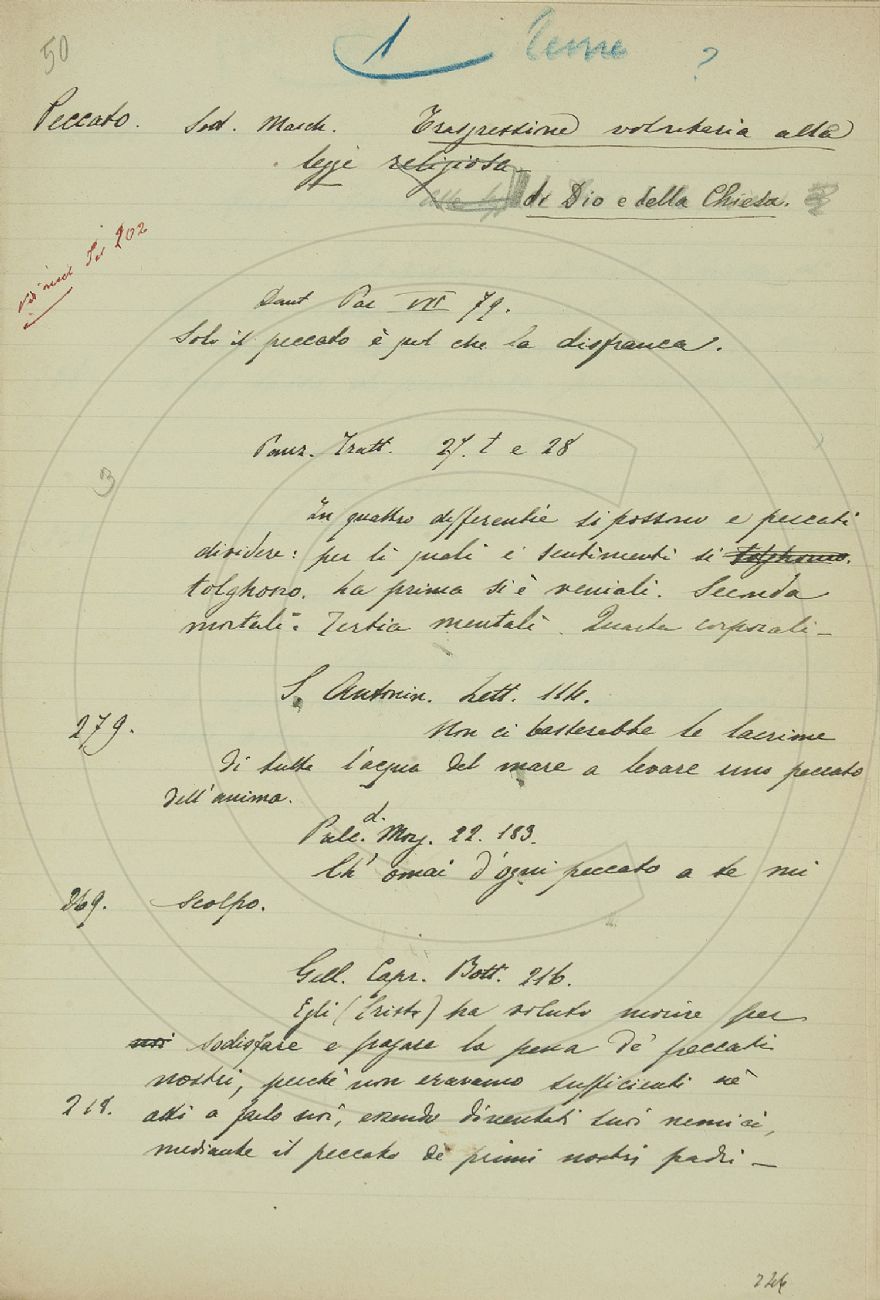 50 1 ?
Peccato. Sost. Masch. Trasgressione volontaria alla
legge religiosa
di Dio e della Chiesa.
202
Dant Par VII 79.
Solo il peccato è quel che la disfranca.
Panz. Tratt. 27. t e 28
3
In quattro differentie si possono e peccati
dividere: per li quali i sentimenti si tolghono.
tolghono. La prima si è veniali. Seconda
mortali. Tertia mentali. Quarta corporali_
S. Antonin. Lett. 114.
279. Non ci basterebbe le lacrime
di tutta l'acqua del mare a levare uno peccato
dell'anima.
Pulc. Morg. 22. 183.
Ch' omai d'ogni peccato a te mi
269. scolpo.
Gell. Capr. Bott. 216.
Egli (Cristo) ha voluto morire per
noi sodisfare e pagare la pena de' peccati
nostri, perchè non eravamo sufficienti nè
218. atti a farlo noi, essendo diventati suoi nemici,
mediante il peccato de' primi nostri padri_